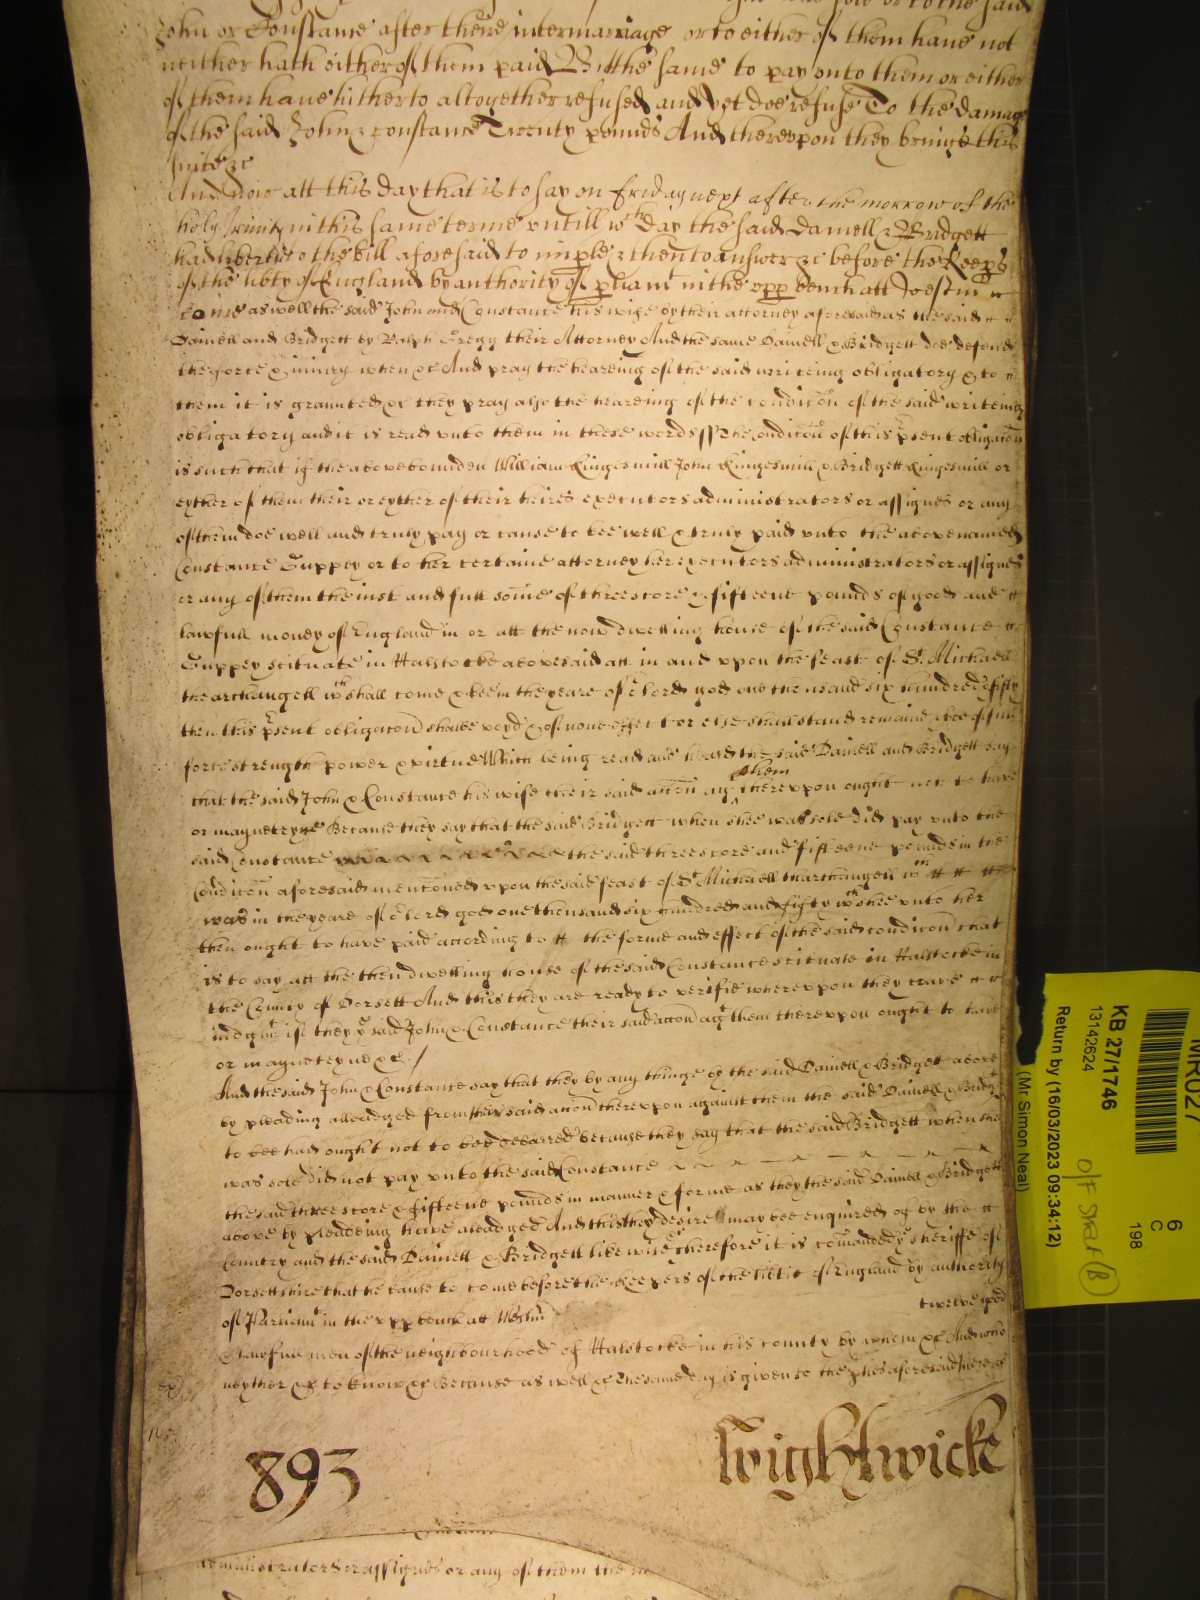 John or Constance after there intermarriage or to either of them have not
neither hath either of them paid But the same to pay unto them or either
of them have hitherto altogether refused and yet doe refuse To the damage
of the said John & Constance Twenty pounds And thereupon they bringe this
suite &c
And now att this day that is to say on friday next after the morrow of the
holy Trinity in this same terme untill wch day the said Daniell & Bridgett
had liberty to the bill aforesaid to imple & then to answer &c before the Keeps
of the libty of England by authority of pliamt in the upp bench att Westm
come as well the said John and Constance his wife by their attorney aforesaid as the said
Daniell and Bridgett by Ralph Gregg their Attorney And the same Daniell & Bridgett doe defend
the force & iniury when &c And pray the heareing of the said writeing obligatory & to
them it is graunted &c they pray also the heareing of the condicon of the said writeing
obligatory and it is read unto them in these words ff The condicon of this psent obligacon
is such that if the above bounden William Kingesmill John Kingesmill & Bridgett Kingesmill or
eyther of them their or eyther of their heires executors administrators or assignes or any
of them doe well and truly pay or cause to bee well & truly paid unto the above named
Constance Guppey or to her certaine attorney her executors administrators or assignes
or any of them the iust and full some of threescore & fifteene pounds of good and
lawfull money of England in or att the now dwelling house of the said Constance
Guppey scituate in Halstocke abovesaid att in and upon the feast of St Michaell
the archangell wch shall come & bee in the yeare of or lord god one thousand six hundred & fifty
then this psent obligacon shalbe voyd & of none effect or else shall stand remaine & bee of full
force strength power & virtue Which being read and heard the said Daniell and Bridgett say
that the said John & Constance his wife their said accon agt them thereupon ought not to have
or maynteyne Because they say that the said Bridgett when shee was sole did pay unto the
said Constance the said threescore and fifteene pounds in the
Condicon aforesaid mentoned upon the said feast of St Michaell tharchangell wch
was in the yeare of or lord god one thousand six hundred and fifty wch shee unto her
then ought to have paid according to the forme and effect of the said condicon that
is to say att the then dwelling house of the said Constance scituate in Halstocke in
the County of Dorsett And this they are ready to verifie whereupon they crave
iudgmt if they ye said John & Constance their said accon agt them thereupon ought to have
or maynteyne &c /
And the said John & Constance say that they by any thinge by the said Daniell & Bridgett above
by pleading alleadged from their said accon thereupon against them the said Daniell & Bridgt
to bee had ought not to bee debarred because they say that the said Bridgett when shee
was sole did not pay unto the said Constance
the said threescore & fifteene pounds in manner & forme as they the said Daniell & Bridgett
above by pleadeing have aleadged And this they desire may bee enquired of by the
Country and the said Daniell & Bridgett likewise therefore it is comanded ye sheriffe of
Dorsettshire that he cause to come before the Keepers of the libtie of England by authority
of Parliamt in the upp bench att Westm twelve good
& lawfull men of the neighbourhood of Halstocke in his county by whom &c And who
neyther &c to know &c Because as well &c The same day is given to the pties aforesaid there &c
893 Wightwicke
administrators or assignes or any of them the
MR027
KB 27/1746
13142624
Return by (16/03/2023 09:34:12)
(Mr Simon Neal)
6
C
198